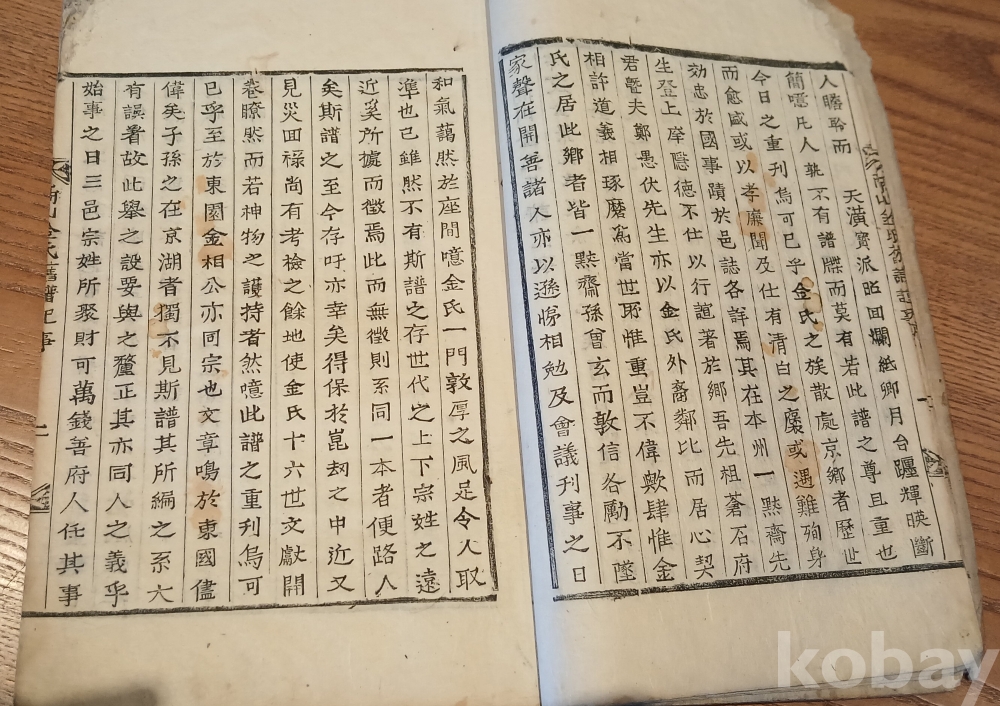 人瞻聆而　天潢寶派昭回爛紙卿月台躔輝暎斷
簡噫凡人孰不有譜牒而莫有若此譜之尊且重也
今日之重刊烏可已乎金氏之族散處京鄉者歷世
而愈盛或以孝廉聞及仕有清白之褒或遇難殉身
効忠於國事蹟於邑誌各詳焉其在本州一黙齋先
生登上庠隱德不仕以行誼著於鄉吾先祖蒼石府
君曁夫鄭愚伏先生亦以金氏外裔鄰比而居心契
相許道義相琢磨爲當世耶惟重豈不偉歟肆惟金
氏之居此鄉者皆一黙齋孫曾玄而敦信各勵不墜
家聲在開善諸人亦以遜悌相勉及會議刊事之日
和氣藹然於座間噫金氏一門敦厚之風足令人取
準也已雖然不有斯譜之存世代之上下宗姓之遠
近奚所據而徵焉此而無徵則系同一本者便路人
矣斯譜之至今存吁亦幸矣得保於崑刼之中近又
見災回祿尚有考檢之餘地使金氏十六世文獻開
卷瞭然而若神物之護持者然噫此譜之重刊烏可
已乎至於東園金相公亦同宗也文章鳴於東國儘
偉矣子孫之在京湖者獨不見斯譜其所編之系六
有誤看故此舉之設要與之釐正其亦同人之義乎
始事之日三邑宗姓所聚財可萬錢善府人任其事
金氏舊譜記事
二
kobay